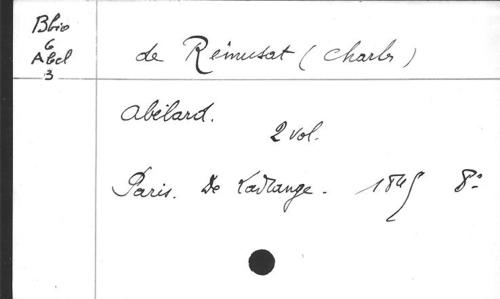 Bbio
6
Abel
3
de Rémusat (Charles)
Abélard.
2 vol.
Paris. De Ladrange. 1845 8°